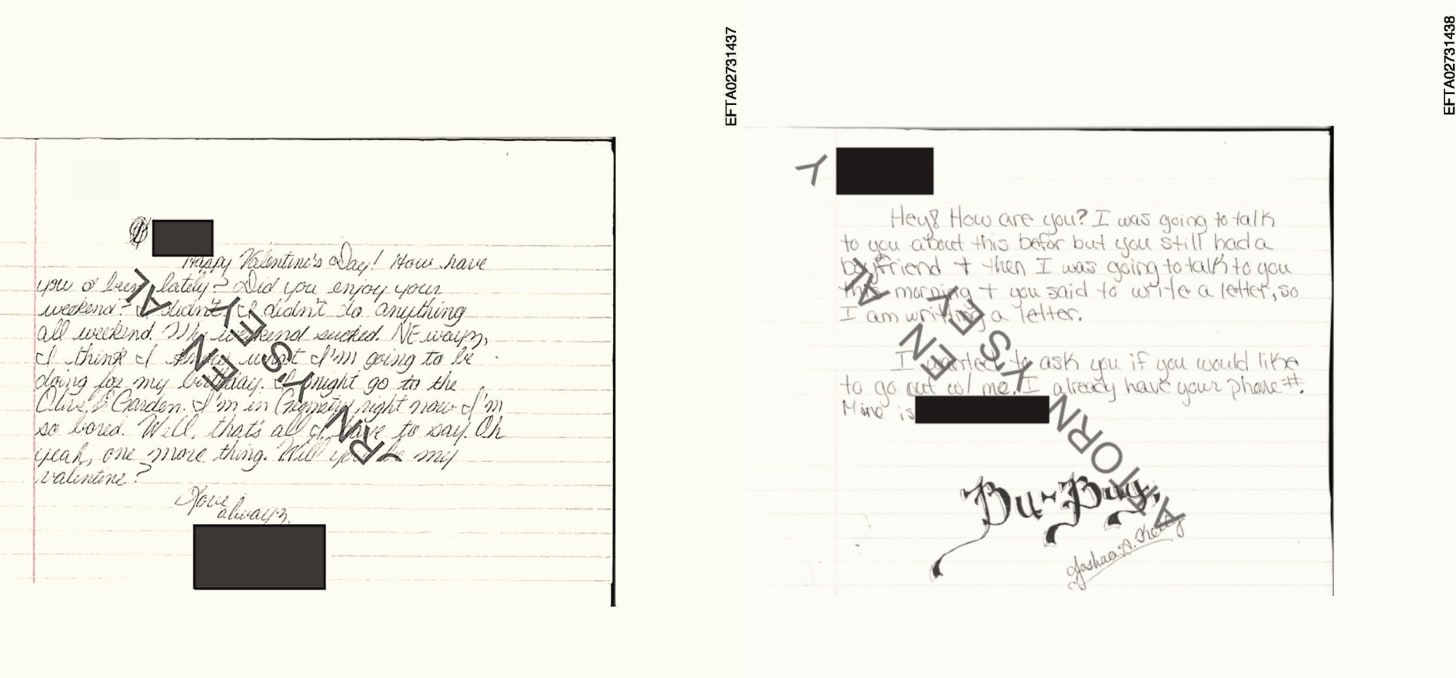 EFTA02731437
Happy Valentine's Day! How have
you b been lately? Did you enjoy your
weekend? I didn't. I didn't do anything
all weekend. My weekend sucked. NE wayz,
I think I know what I'm going to be
doing for my birthday. I might go to the
Olive Garden. I'm in Geometry right now I'm
so bored. Well, that's all I have to say. Oh
yeah, one more thing. Will you be my
valentine?
Love
alwayz,
EFTA02731438
Hey! How are you? I was going to talk
to you about this befor but you still had a
boyfriend + then I was going to talk to you
this morning + you said to write a letter, so
I am writing a letter.
I wanted to ask you if you would like
to go out w/ me. I already have your phone #.
Mine is
Bu-Buy,
Joshua A.